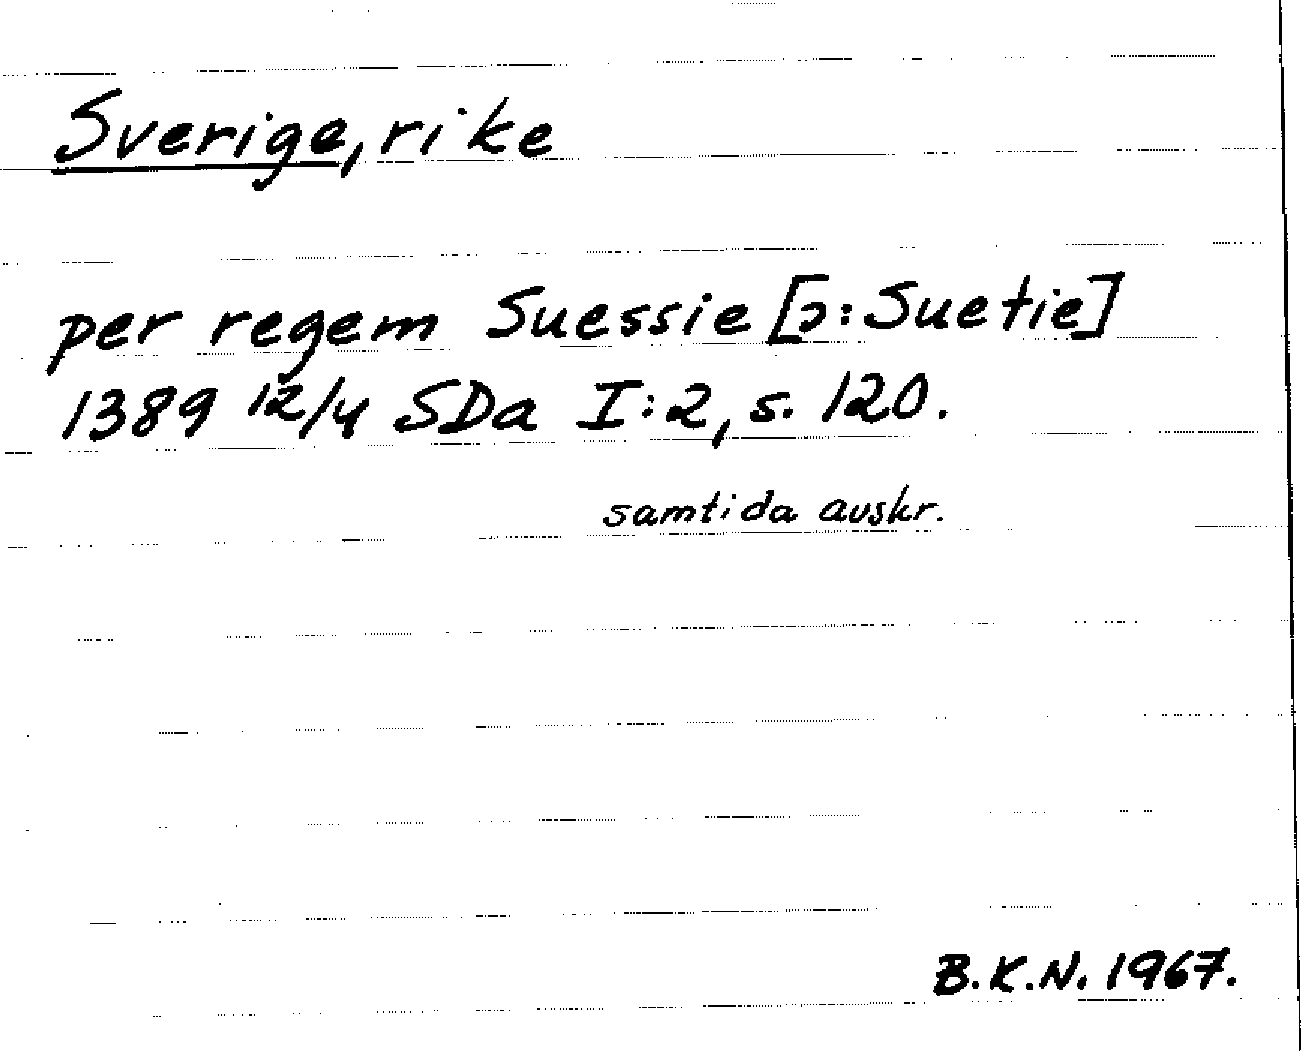 Sverige, rike
per regem Suessie [ɔ: Suetie]
1389 12/4 SDa I:2, s. 120.
samtida avskr.
B.K.N. 1967.